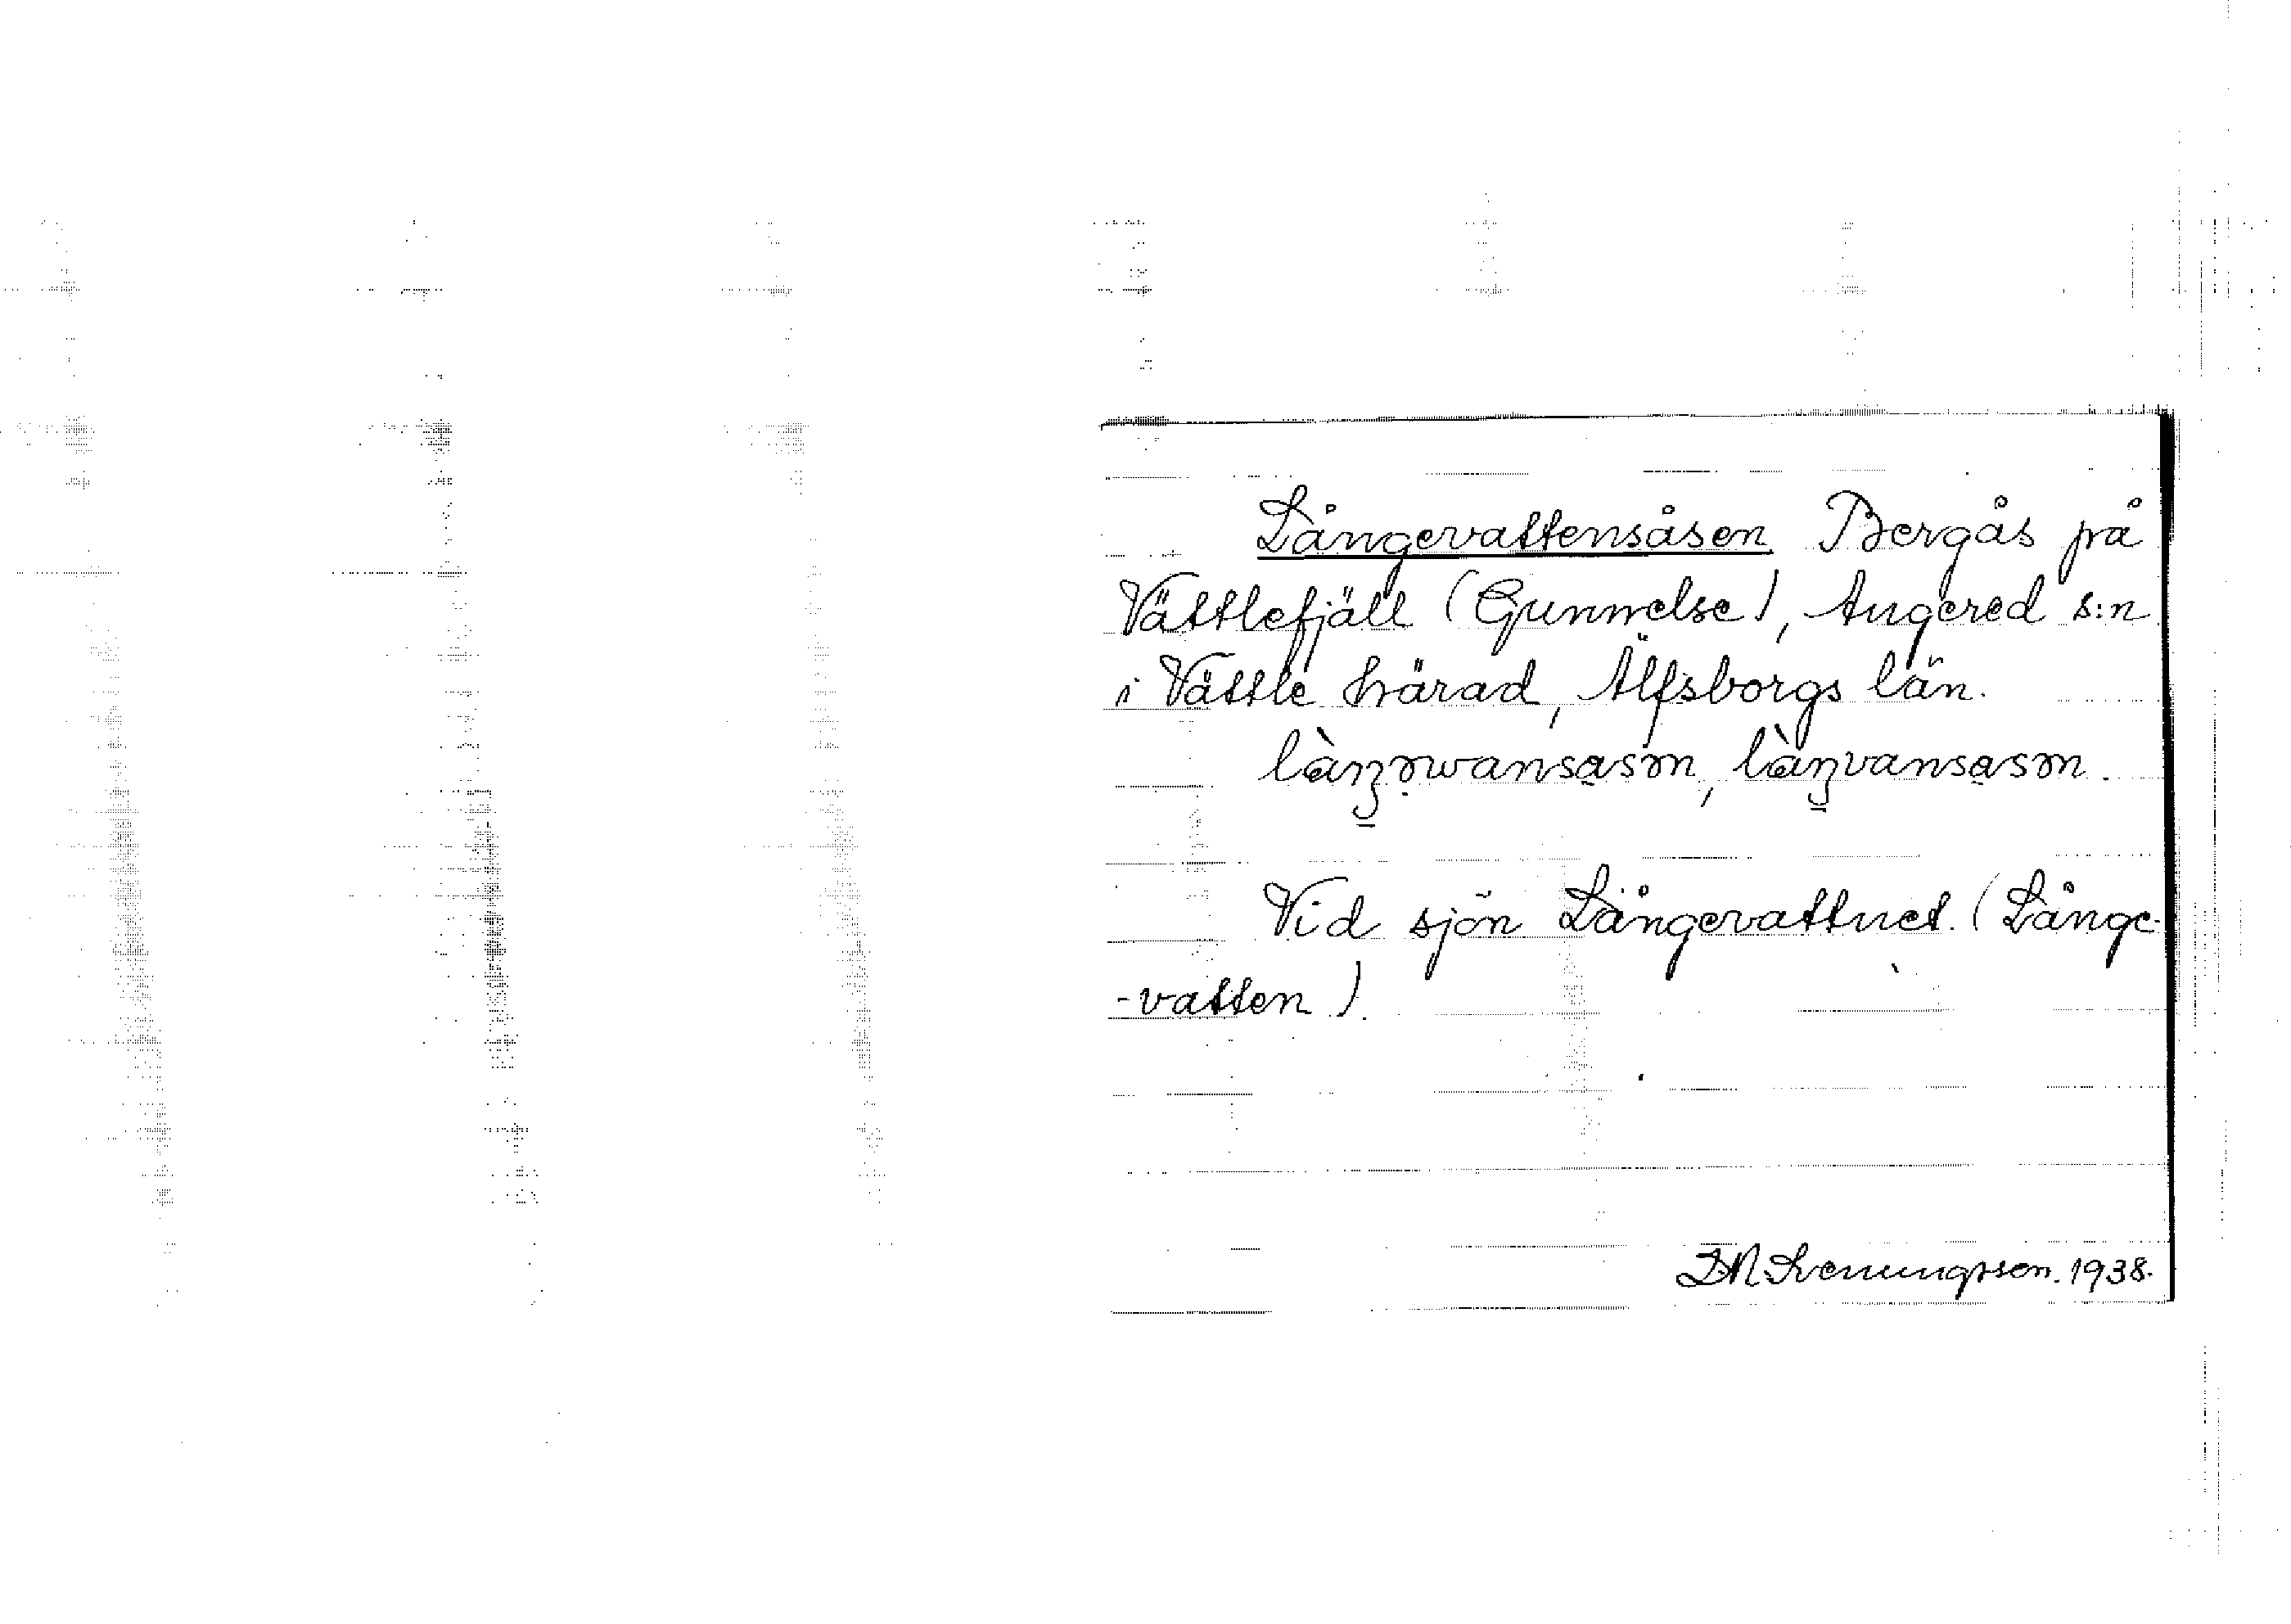 Långevattensåsen Bergås på
Vättlefjäll (Gunnelse), Angered s:n
i Vättle härad, Älfsborgs län.
Vid sjön Långevattnet. (Långe-
-vatten).
1938.